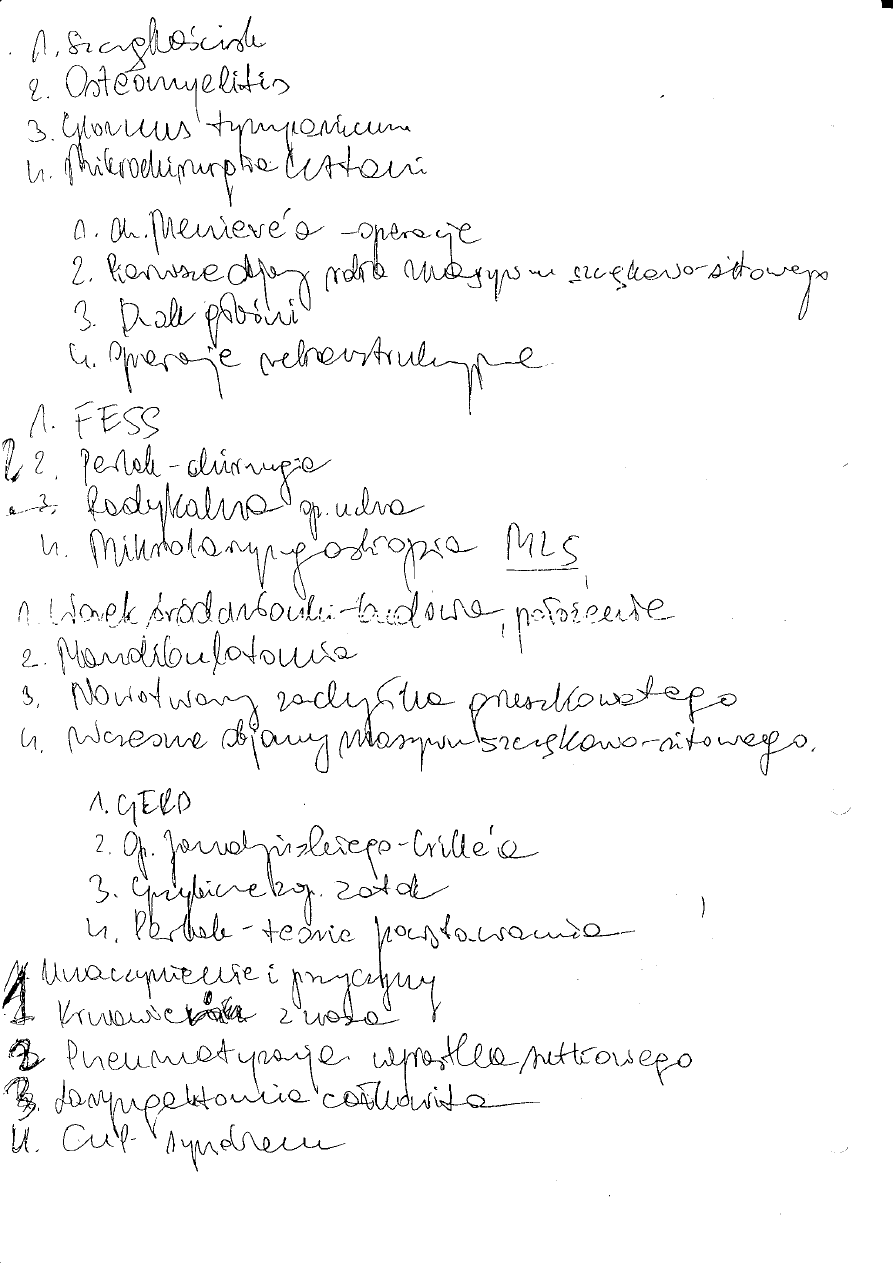 1. Szczękościsk
2. Osteomyelitis
3. Glomus tympanicum
4. Mikrochirurgia krtani
1. ch. Meniere'a - operacje
2. Pierwsze objawy raka masywu szczękowo-sitowego
3. Rak głośni
4. Operacje rekonstrukcyjne
1. FESS
2. Perlak - chirurgia
3. Radykalna op. ucha
4. Mikrolaryngoskopia MLS
1. Worek śródchłonki - budowa, położenie
2. Mandibulotomia
3. Nowotwory zachyłka gruszkowatego
4. Wczesne objawy masywu szczękowo-sitowego.
1. GERD
2. Op. Jawdyńskiego-Crille'a
3. Grzybicze zap. zatok
4. Perlak - teorie powstawania
1 Unaczynienie i przyczyny
krwawień z nosa
2 Pneumatyzacja wyrostka sutkowego
3. Laryngektomia całkowita
4. CUP syndrom